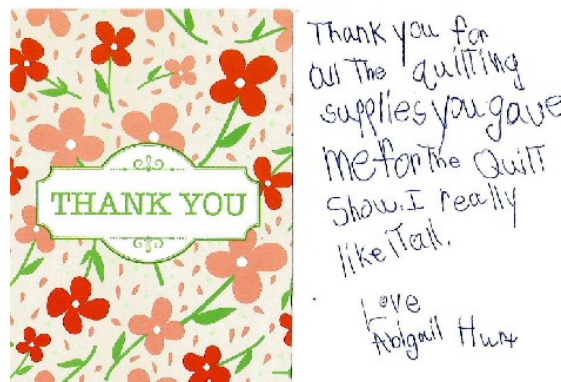 THANK YOU
Thank you for
all The quilting
supplies you gave
me for The Quilt
Show. I really
like iT all.
Love
Abigail Hunt